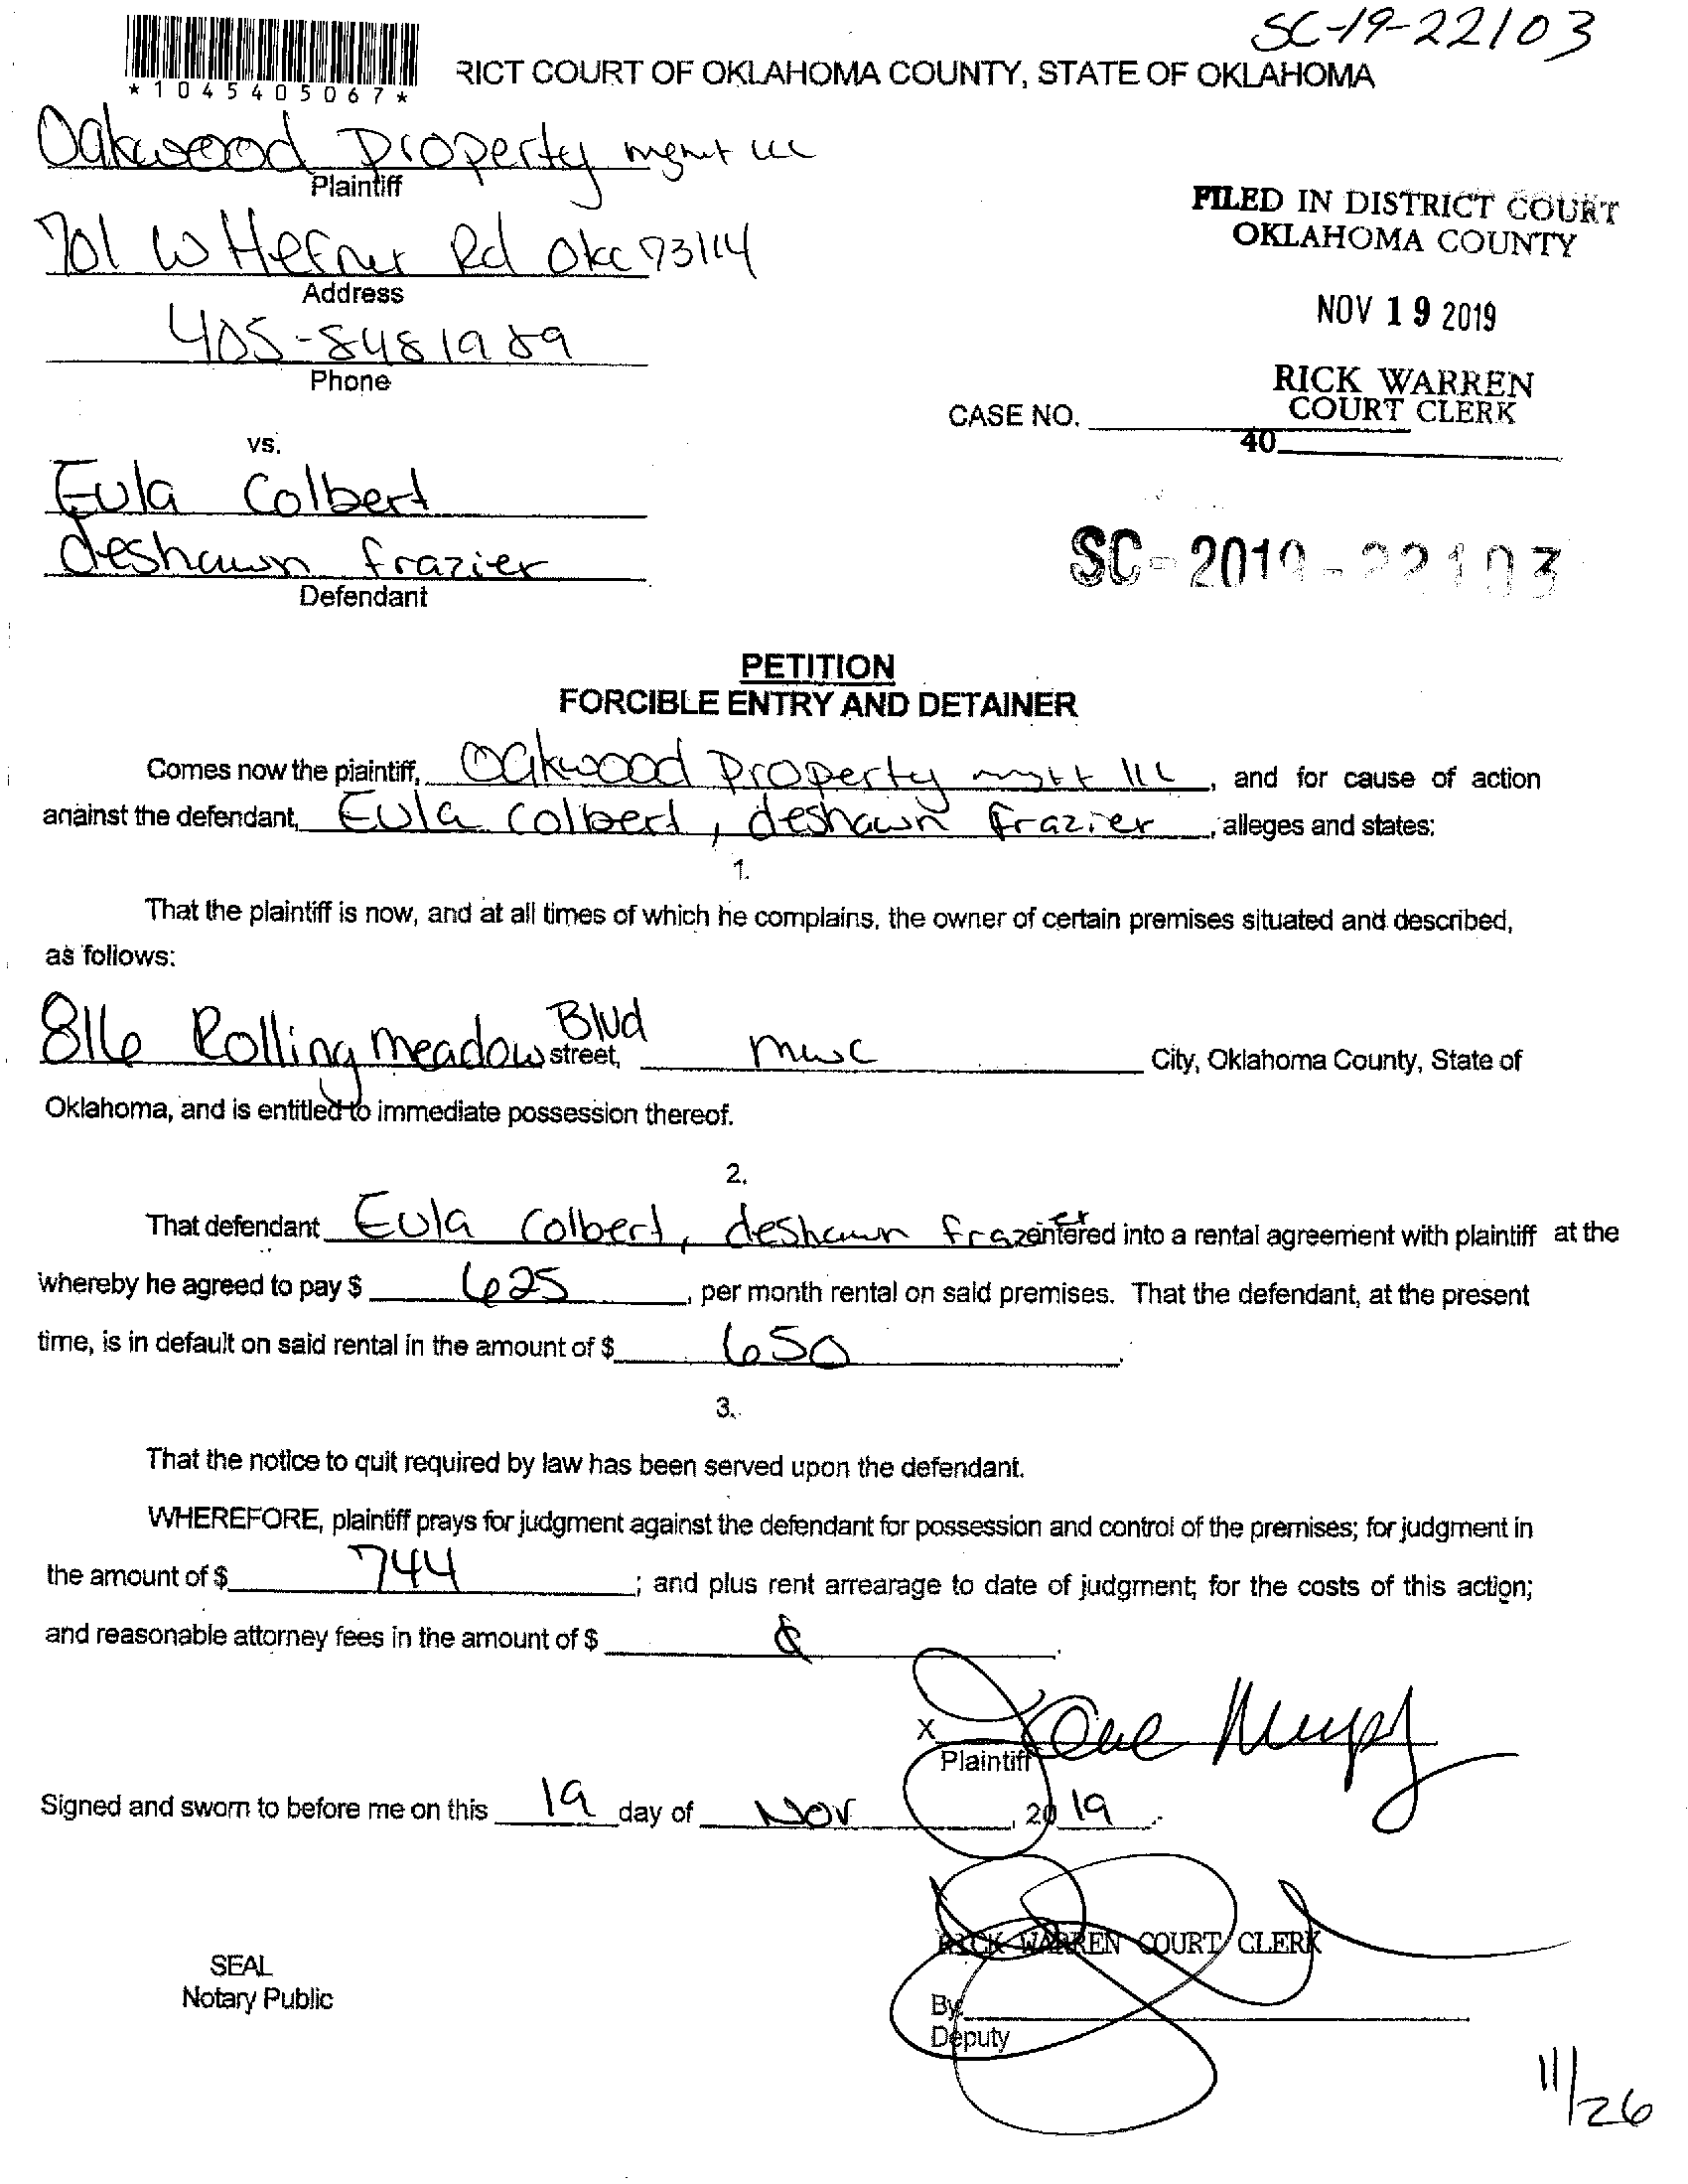 SC-19-22103
*1045405067*
RICT COURT OF OKLAHOMA COUNTY, STATE OF OKLAHOMA
Oakwood Property mgmt llc
Plaintiff
701 W Hefner Rd Okc 73114
Address
405-8481989
Phone
FILED IN DISTRICT COURT
OKLAHOMA COUNTY
NOV 19 2019
RICK WARREN
COURT CLERK
CASE NO.
40
vs.
Eula Colbert
deshawn frazier
Defendant
SC-2019-22103
PETITION
FORCIBLE ENTRY AND DETAINER
Comes now the plaintiff, Oakwood Property mgtt llc, and for cause of action
against the defendant, Eula Colbert, deshawn frazier, alleges and states:
1.
That the plaintiff is now, and at all times of which he complains, the owner of certain premises situated and described,
as follows:
816 Rolling meadow Blvd street, mwc City, Oklahoma County, State of
Oklahoma, and is entitled to immediate possession thereof.
2.
That defendant Eula Colbert, deshawn frazier entered into a rental agreement with plaintiff at the
whereby he agreed to pay $ 625, per month rental on said premises. That the defendant, at the present
time, is in default on said rental in the amount of $ 650.
3.
That the notice to quit required by law has been served upon the defendant.
WHEREFORE, plaintiff prays for judgment against the defendant for possession and control of the premises; for judgment in
the amount of $ 744; and plus rent arrearage to date of judgment; for the costs of this action;
and reasonable attorney fees in the amount of $
X
Plaintiff
Signed and sworn to before me on this 19 day of Nov, 2019.
RICK WARREN COURT CLERK
SEAL
Notary Public
By:
Deputy
11/26